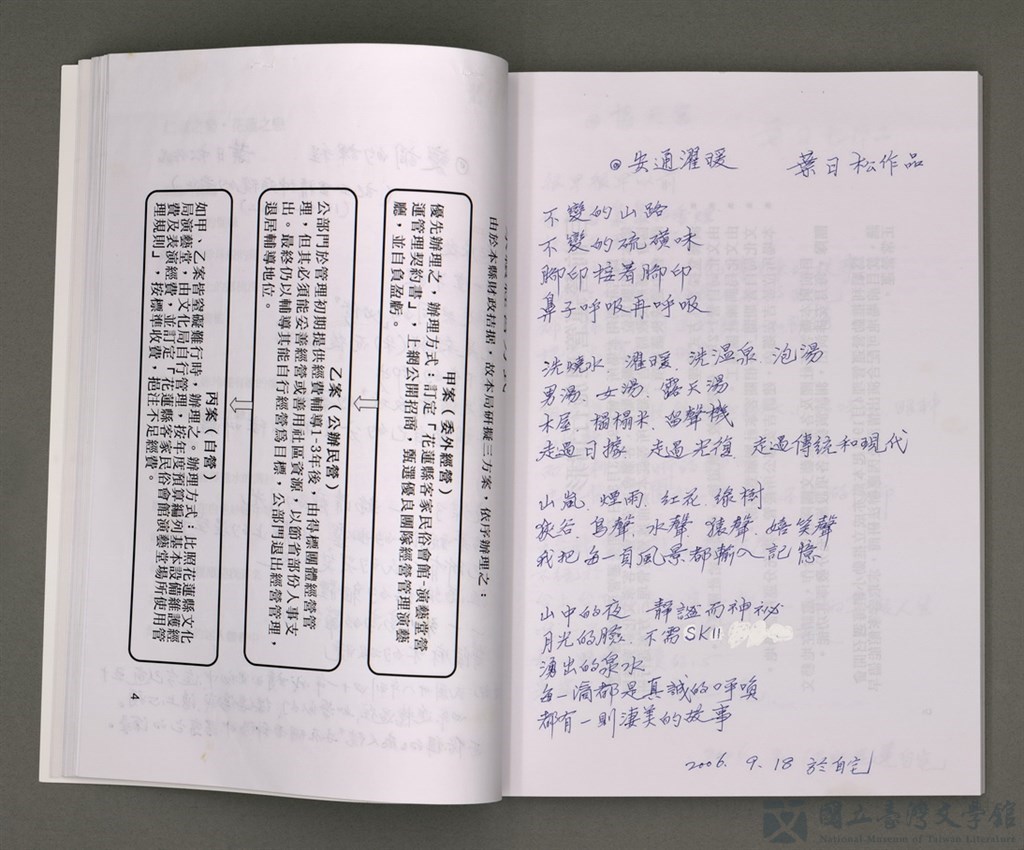 由於本縣財政拮据，故本局研擬三方案，依序辦理之：
甲案（委外經營）
優先辦理之，辦理方式：訂定「花蓮縣客家民俗會館-演藝堂營
運管理契約書」，上網公開招商，甄選優良團隊經營管理演藝
廳，並自負盈虧。
乙案（公辦民營）
公部門於管理初期提供經費輔導1-3年後，由得標團體經營管
理，但其必須能妥善經營或善用社區資源，以節省部份人事支
出。最終仍以輔導其能自行經營為目標，公部門退出經營管理，
退居輔導地位。
丙案（自營）
如甲、乙案皆窒礙難行時，辦理之。辦理方式：比照花蓮縣文化
局演藝堂，由文化局自行管理，按年度預算編列基本設備維護經
費及表演經費，並訂定「花蓮縣客家民俗會館演藝堂場所使用管
理規則」，按標準收費，挹注不足經費。
4
◎安通濯暖 葉日松作品
不變的山路
不變的硫磺味
腳印捱著腳印
鼻子呼吸再呼吸
洗燒水 濯暖、洗溫泉、泡湯
男湯、女湯、露天湯
木屋、榻榻米、留聲機
走過日據 走過光復 走過傳統和現代
山嵐、煙雨、紅花、綠樹
峽谷、鳥聲、水聲、猿聲、嬉笑聲
我把每一頁風景都輸入記憶
山中的夜 靜謐而神祕
月光的臉，不需SKII
湧出的泉水
每一滴都是真誠的呼喚
都有一則淒美的故事
2006. 9. 18 於自宅
國立臺灣文學館
National Museum of Taiwan Literature